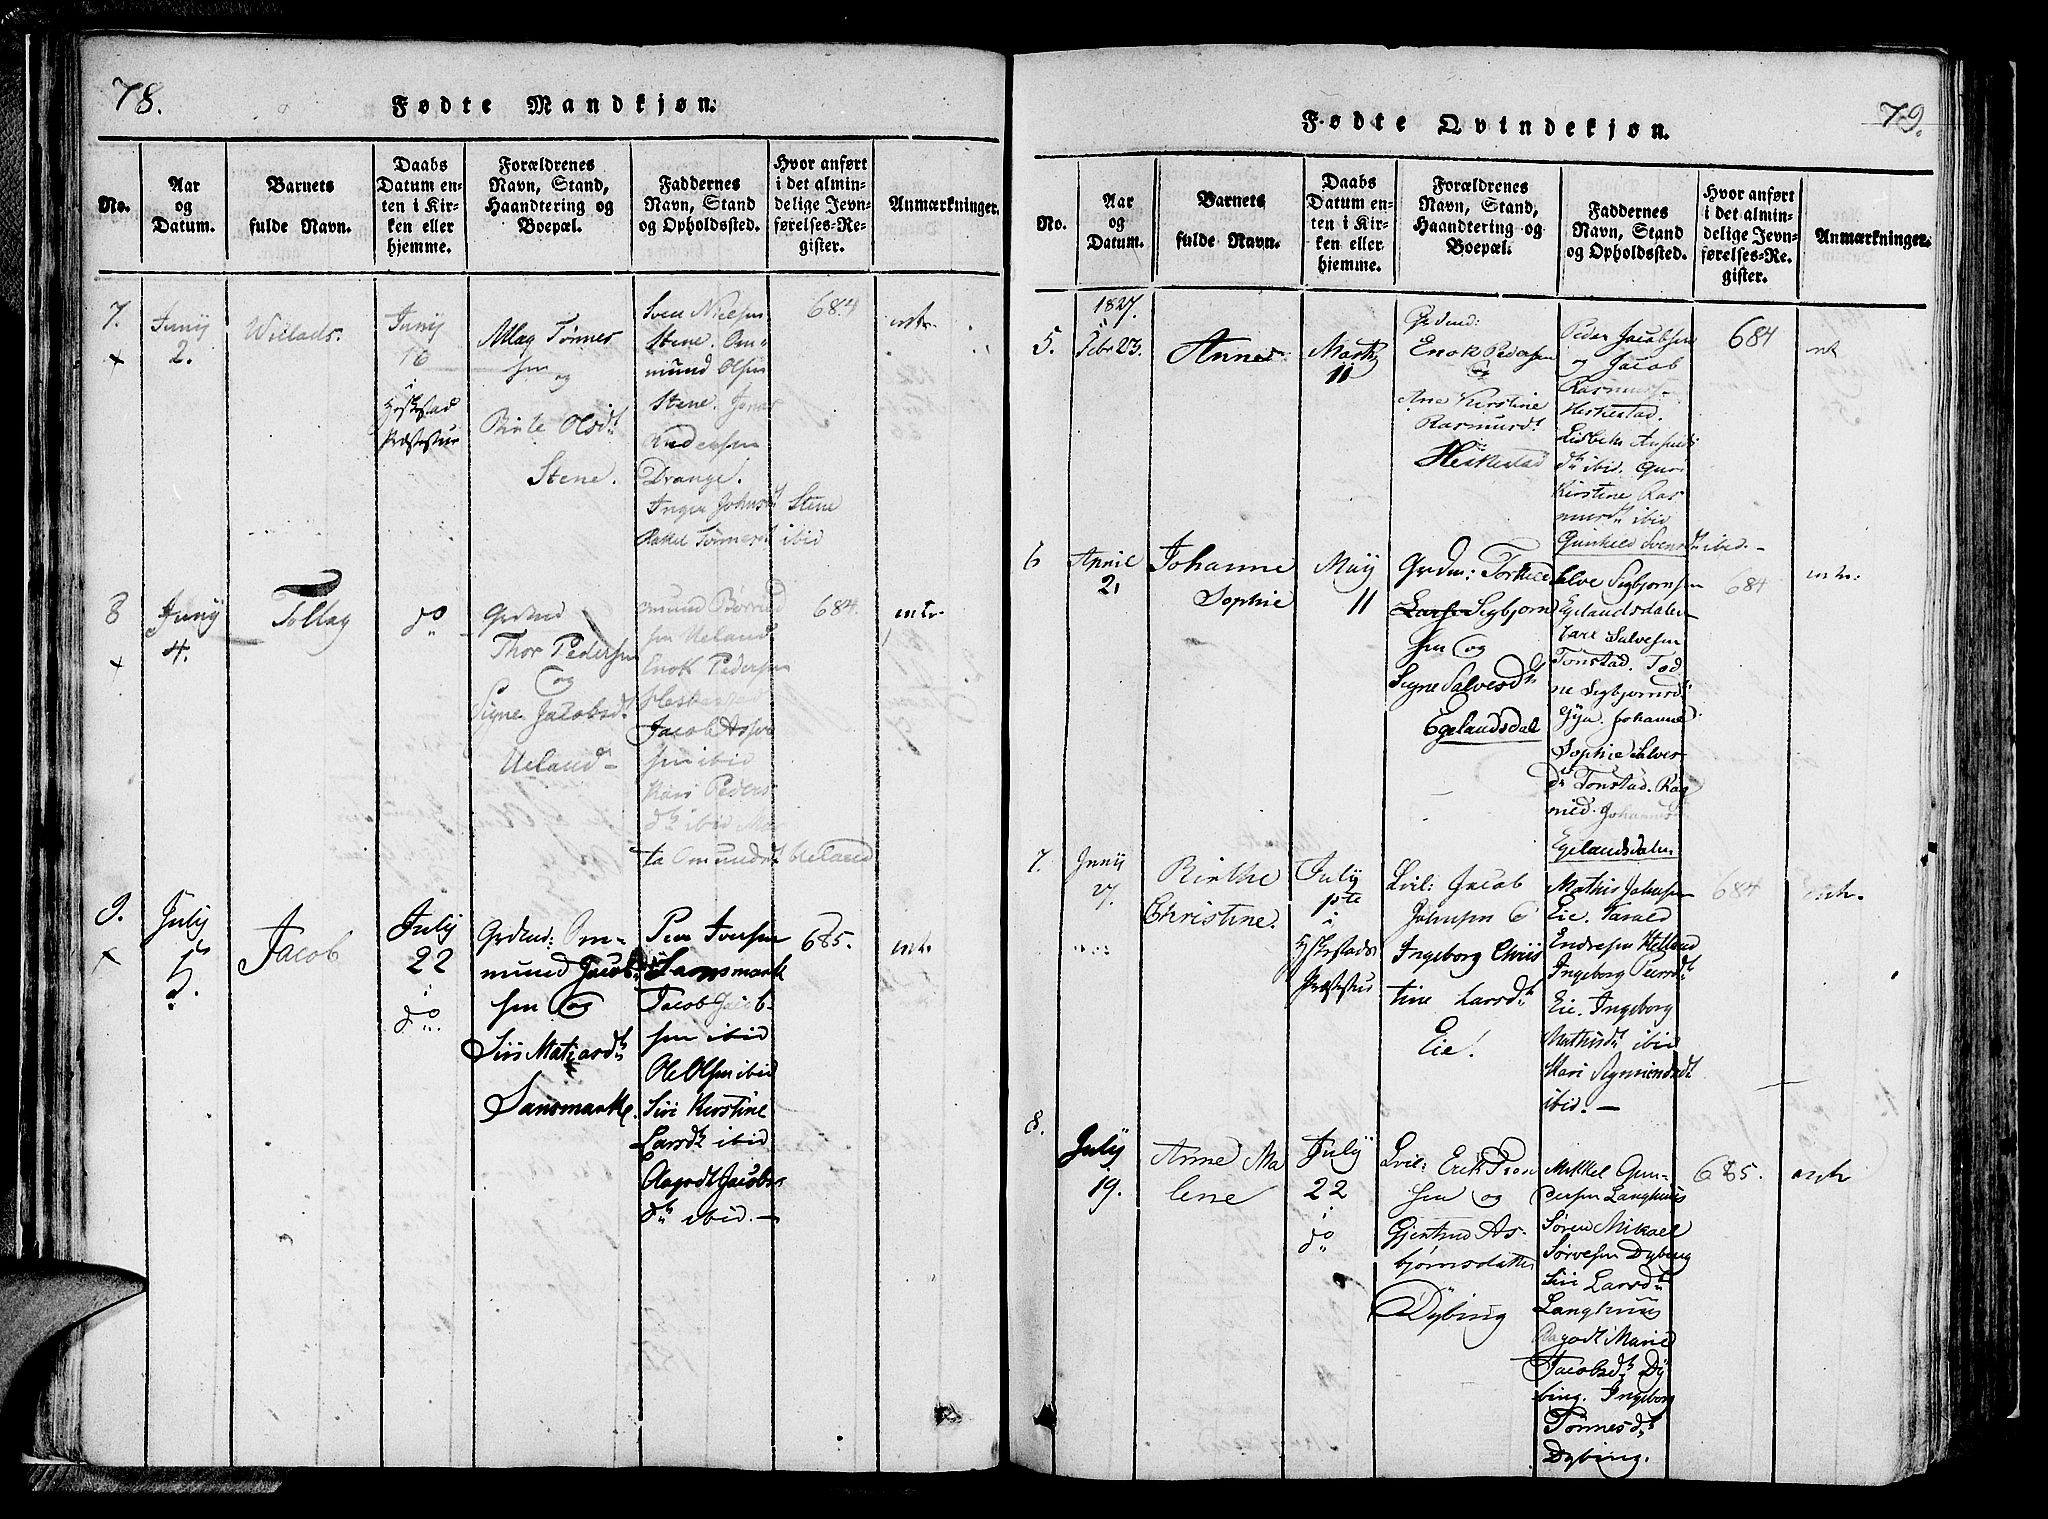 78.
Fødte Mandkjøn.
No.
Aar
og
Datum.
Barnets
fulde Navn.
Daabs
Datum en-
ten i Kir-
ken eller
hjemme.
Forældrenes
Navn, Stand,
Haandtering og
Boepæl.
Faddernes
Navn, Stand
og Opholdssted.
Hvor anført
i det almin-
delige Jevn-
førelses-Re-
gister.
Anmærkninger.
7.
Junij
2.
Willads.
Junij
16
i
Heskestad
Præstestue
Tønnes
sen
og
Birte Olsdt
Stene.
Sven Nielsen
Stene. Om-
mund Olsen
Stene. Jonas
Andersen
Drange.
Inger Johnsdt Stene
Rakel Tønnesdt ibid
684
8
Junij
4.
Tollag
do
Grdmd
Thor Pedersen
og
Signe Jacobsdt
Ueland
sen Ueland
Enok Pedersen
Heskestad
Jacob
sen ibid
Kari Peders
dtr ibid Mar
ta Omundsdt Ueland
684.
9.
July
5.
Jacob
July
22
i
do
Grdmd: Om-
mund Jacob
sen og
Siri
Sansmark.
Peer Iversen
Sansmark
Jacob Jacob-
sen ibid
Ole Olsen ibid
Siri Kirstine
Larsdtr ibid
Aagodt Jacobs
dtr ibid. —
685.
79.
Fødte Qvindekjøn.
No.
Aar
og
Datum.
Barnets
fulde Navn.
Daabs
Datum en-
ten i Kir-
ken eller
hjemme.
Forældrenes
Navn, Stand,
Haandtering og
Boepæl.
Faddernes
Navn, Stand
og Opholdssted.
Hvor anført
i det almin-
delige Jevn-
førelses-Re-
gister.
Anmærkninger.
5.
1827.
Febr 23.
Anne
Marts
11
Grdmd:
Enok Pedersen
og
Ane Kirstine
Rasmusdt
Heskestad
Peder Jacobsen
og Jacob
Rasmus-
Heskestad.
Lisbeth
dtr ibid.
Kirstine Ras
musdt ibid
Gunhild Svensdt ibid.
684
6
April
21
Johanne
Sophie
Maij
11
Grdm: Torkild
Larsen Segbjørn
sen og
Signe Salvesdt
Egelandsdal
Salve Segbjørnsen
Egelandsdalen
Tarel Salvesen
Tonstad. Tod
ne Segbjørnsdt
Gya. Johanne
Sophie Salves
dtr Tonstad. Rag
nied. Johannes
Egelandsdalen
684
7.
Junij
27.
Birthe
Christine.
July
1ste
i
Heskestads
Præstestue
Lvil: Jacob
Johnsen &
Ingeborg Chris
tine Larsdtr
Eie.
Mathis Johnsen
Eie. Tarald
Endresen Hetland
Ingeborg Peersdt
Eie. Ingeborg
Mathisdt ibid
Kari Sigmundsdt
ibid. —
684
8.
July
19.
Anne Ma
lene
July
22
i
do
Lvil: Erik Tron
sen og
Gjertrud As-
bjørnsdatter
Dybing
Mikkel Gun-
dersen Langhuus
Søren Mikael
Sørvesen Dybing
Siri Larsdt
Langhuus
Aagodt Marie
Jacobsdt Dy
bing. Ingeborg
Tønnesdt
Dybing.
685.